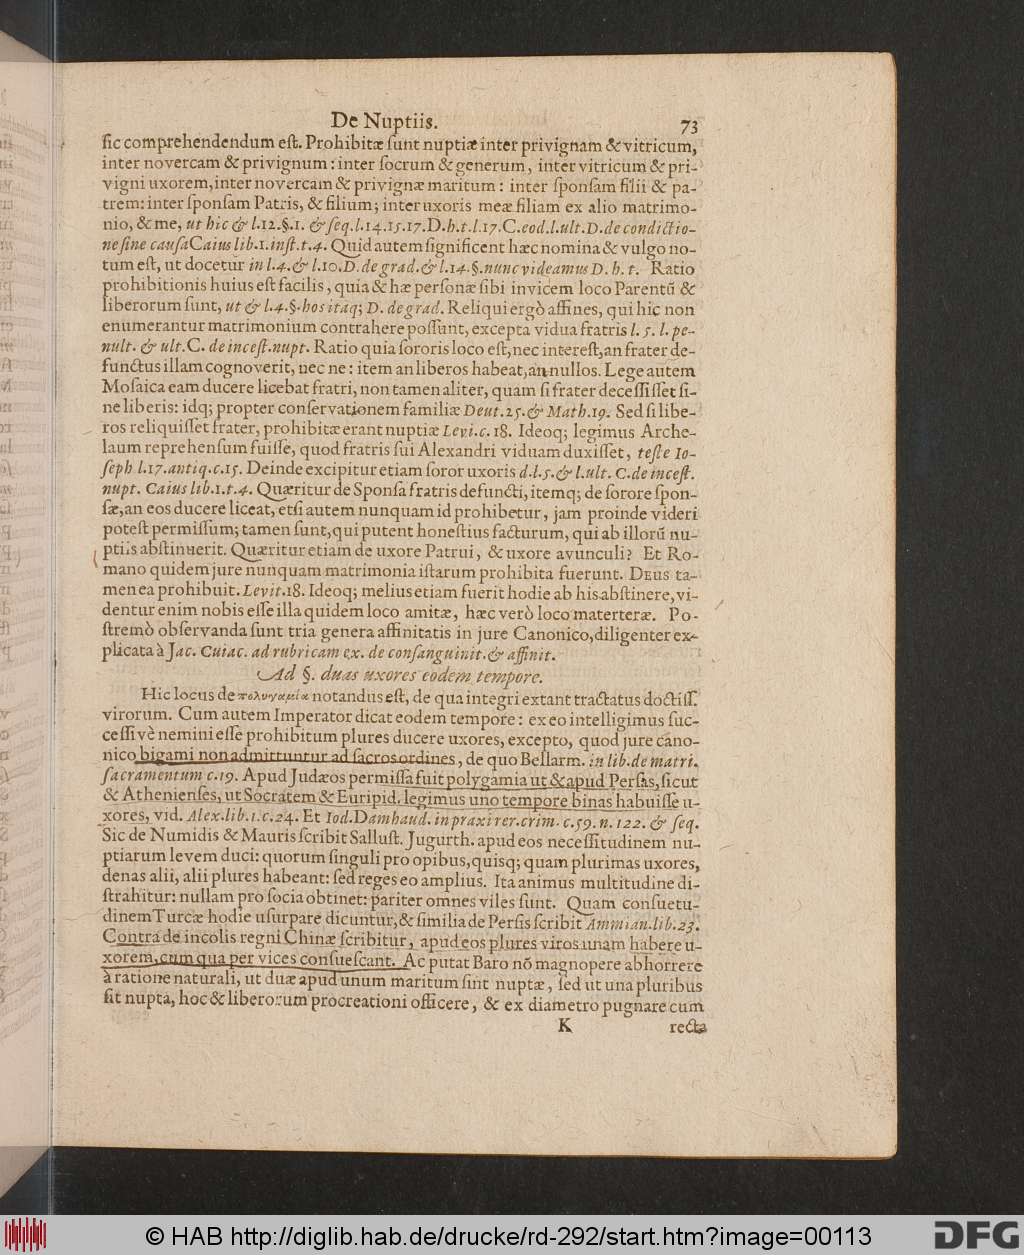 De Nuptiis. 73
ſic comprehendendum eſt. Prohibitæ ſunt nuptiæ inter privignam & vitricum,
inter novercam & privignum: inter ſocrum & generum, inter vitricum & pri-
vigni uxorem, inter novercam & privignæ maritum: inter ſponſam filii & pa-
trem: inter ſponſam Patris, & filium; inter uxoris meæ filiam ex alio matrimo-
nio, & me, ut hic & l.12.§.1. & ſeq. l.14.15.17. D. h. t. l.17. C. eod. l. ult. D. de condictio-
ne ſine cauſa Caius lib.1. inſt. t.4. Quid autem ſignificent hæc nomina & vulgo no-
tum eſt, ut docetur in l.4. & l.10. D. de grad. & l.14.§. nunc videamus D. h. t. Ratio
prohibitionis huius eſt facilis, quia & hæ perſonæ ſibi invicem loco Parentũ &
liberorum ſunt, ut & l.4.§. hos itaq; D. de grad. Reliqui ergò affines, qui hic non
enumerantur matrimonium contrahere poſſunt, excepta vidua fratris l. 5. l. pe-
nult. & ult. C. de inceſt. nupt. Ratio quia ſororis loco eſt, nec intereſt, an frater de-
functus illam cognoverit, nec ne: item an liberos habeat, an nullos. Lege autem
Moſaica eam ducere licebat fratri, non tamen aliter, quam ſi frater deceſſiſſet ſi-
ne liberis: idq; propter conſervationem familiæ Deut. 25. & Math. 19. Sed ſi libe-
ros reliquiſſet frater, prohibitæ erant nuptiæ Levi. c. 18. Ideoq; legimus Arche-
laum reprehenſum fuiſſe, quod fratris ſui Alexandri viduam duxiſſet, teſte Io-
ſeph l.17. antiq. c.15. Deinde excipitur etiam ſoror uxoris d. l. 5. & l. ult. C. de inceſt.
nupt. Caius lib.1. t.4. Quæritur de Sponſa fratris defuncti, itemq; de ſorore ſpon-
ſæ, an eos ducere liceat, etſi autem nunquam id prohibetur, jam proinde videri
poteſt permiſſum; tamen ſunt, qui putent honeſtius facturum, qui ab illorũ nu-
ptiis abſtinuerit. Quæritur etiam de uxore Patrui, & uxore avunculi? Et Ro-
mano quidem jure nunquam matrimonia iſtarum prohibita fuerunt. DEUS ta-
men ea prohibuit. Levit. 18. Ideoq; melius etiam fuerit hodie ab his abſtinere, vi-
dentur enim nobis eſſe illa quidem loco amitæ, hæc verò loco materteræ. Po-
ſtremò obſervanda ſunt tria genera affinitatis in jure Canonico, diligenter ex-
plicata à Jac. Cuiac. ad rubricam ex. de conſanguinit. & affinit.
Ad §. duas uxores eodem tempore.
Hic locus de πολυγαμία notandus eſt, de qua integri extant tractatus doctiſſ.
virorum. Cum autem Imperator dicat eodem tempore: ex eo intelligimus ſuc-
ceſſivè nemini eſſe prohibitum plures ducere uxores, excepto, quod jure cano-
nico bigami non admittuntur ad ſacros ordines, de quo Bellarm. in lib. de matri.
ſacramentum c.19. Apud Judæos permiſſa fuit polygamia ut & apud Perſas, ſicut
& Athenienſes, ut Socratem & Euripid. legimus uno tempore binas habuiſſe u-
xores, vid. Alex. lib. 1. c. 24. Et Iod. Damhaud. in praxi rer. crim. c. 59. n. 122. & ſeq.
Sic de Numidis & Mauris ſcribit Salluſt. Jugurth. apud eos neceſſitudinem nu-
ptiarum levem duci: quorum ſinguli pro opibus, quisq; quam plurimas uxores,
denas alii, alii plures habeant: ſed reges eo amplius. Ita animus multitudine di-
ſtrahitur: nullam pro ſocia obtinet: pariter omnes viles ſunt. Quam conſuetu-
dinem Turcæ hodie uſurpare dicuntur, & ſimilia de Perſis ſcribit Ammian. lib. 23.
Contra de incolis regni Chinæ ſcribitur, apud eos plures viros unam habere u-
xorem, cum qua per vices conſueſcant. Ac putat Baro nõ magnopere abhorrere
à ratione naturali, ut duæ apud unum maritum ſint nuptæ, ſed ut una pluribus
ſit nupta, hoc & liberorum procreationi officere, & ex diametro pugnare cum
K recta
© HAB http://diglib.hab.de/drucke/rd-292/start.htm?image=00113
DFG